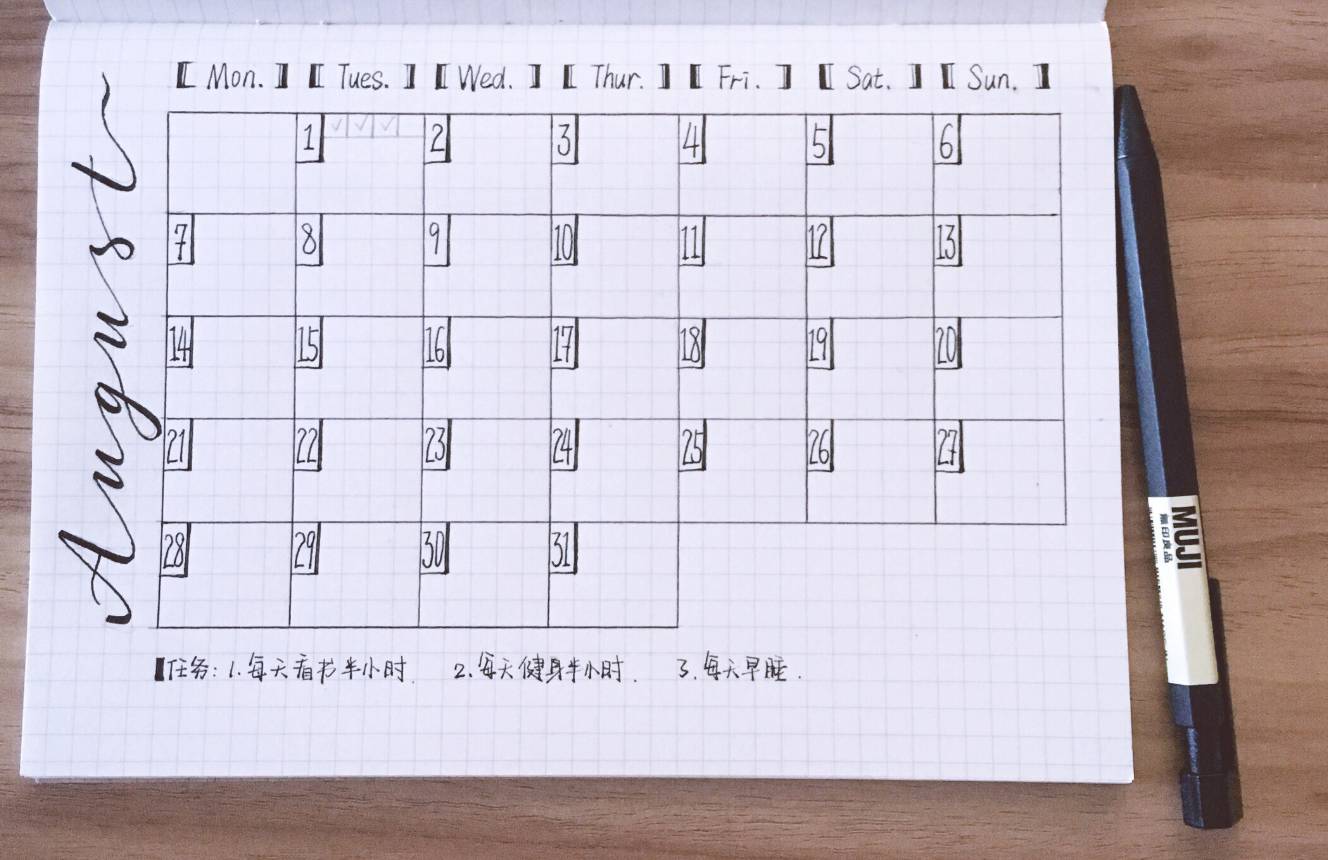 August
【 Mon. 】【 Tues. 】【 Wed. 】【 Thur. 】【 Fri. 】【 Sat. 】【 Sun. 】
1 ✓ ✓ ✓ 2 3 4 5 6
7 8 9 10 11 12 13
14 15 16 17 18 19 20
21 22 23 24 25 26 27
28 29 30 31
任务: 1. 每天看书半小时. 2. 每天健身半小时. 3. 每天早睡.
MUJI
無印良品